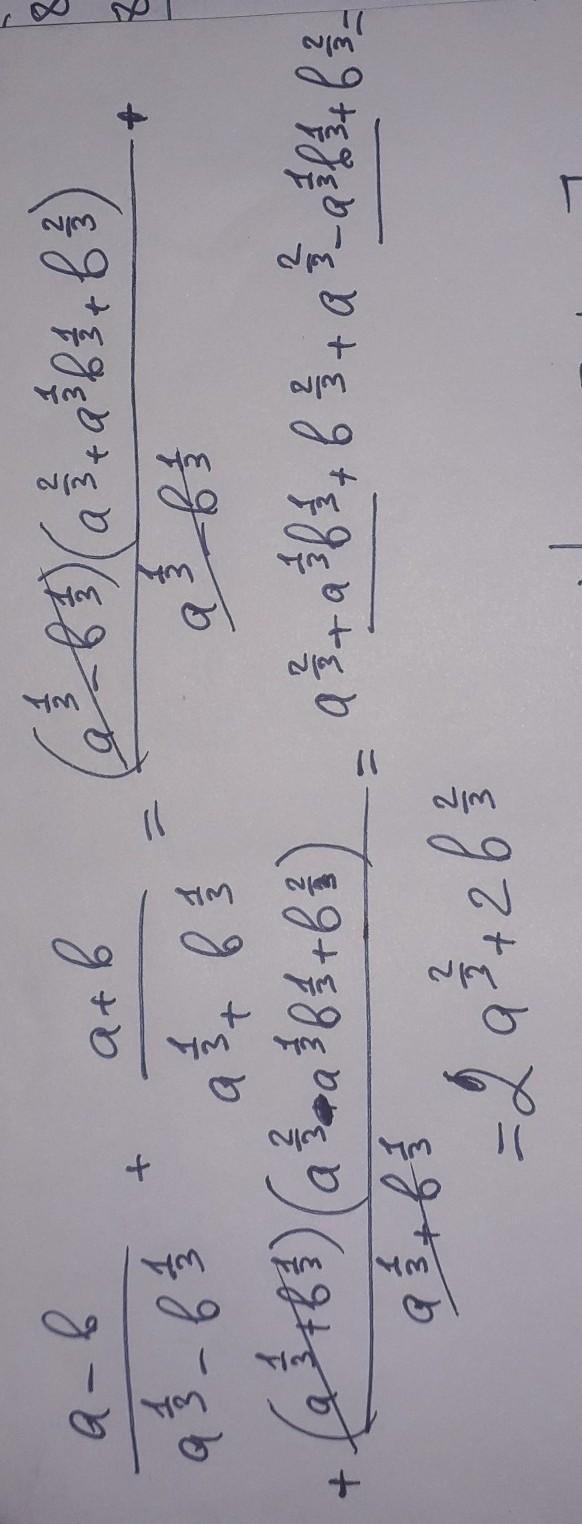 (a - b)/(a^(1/3) - b^(1/3)) + (a + b)/(a^(1/3) + b^(1/3)) = ((a^(1/3) - b^(1/3))(a^(2/3) + a^(1/3)b^(1/3) + b^(2/3)))/(a^(1/3) - b^(1/3)) +
+ ((a^(1/3) + b^(1/3))(a^(2/3) - a^(1/3)b^(1/3) + b^(2/3)))/(a^(1/3) + b^(1/3)) = a^(2/3) + a^(1/3)b^(1/3) + b^(2/3) + a^(2/3) - a^(1/3)b^(1/3) + b^(2/3) =
= 2a^(2/3) + 2b^(2/3)